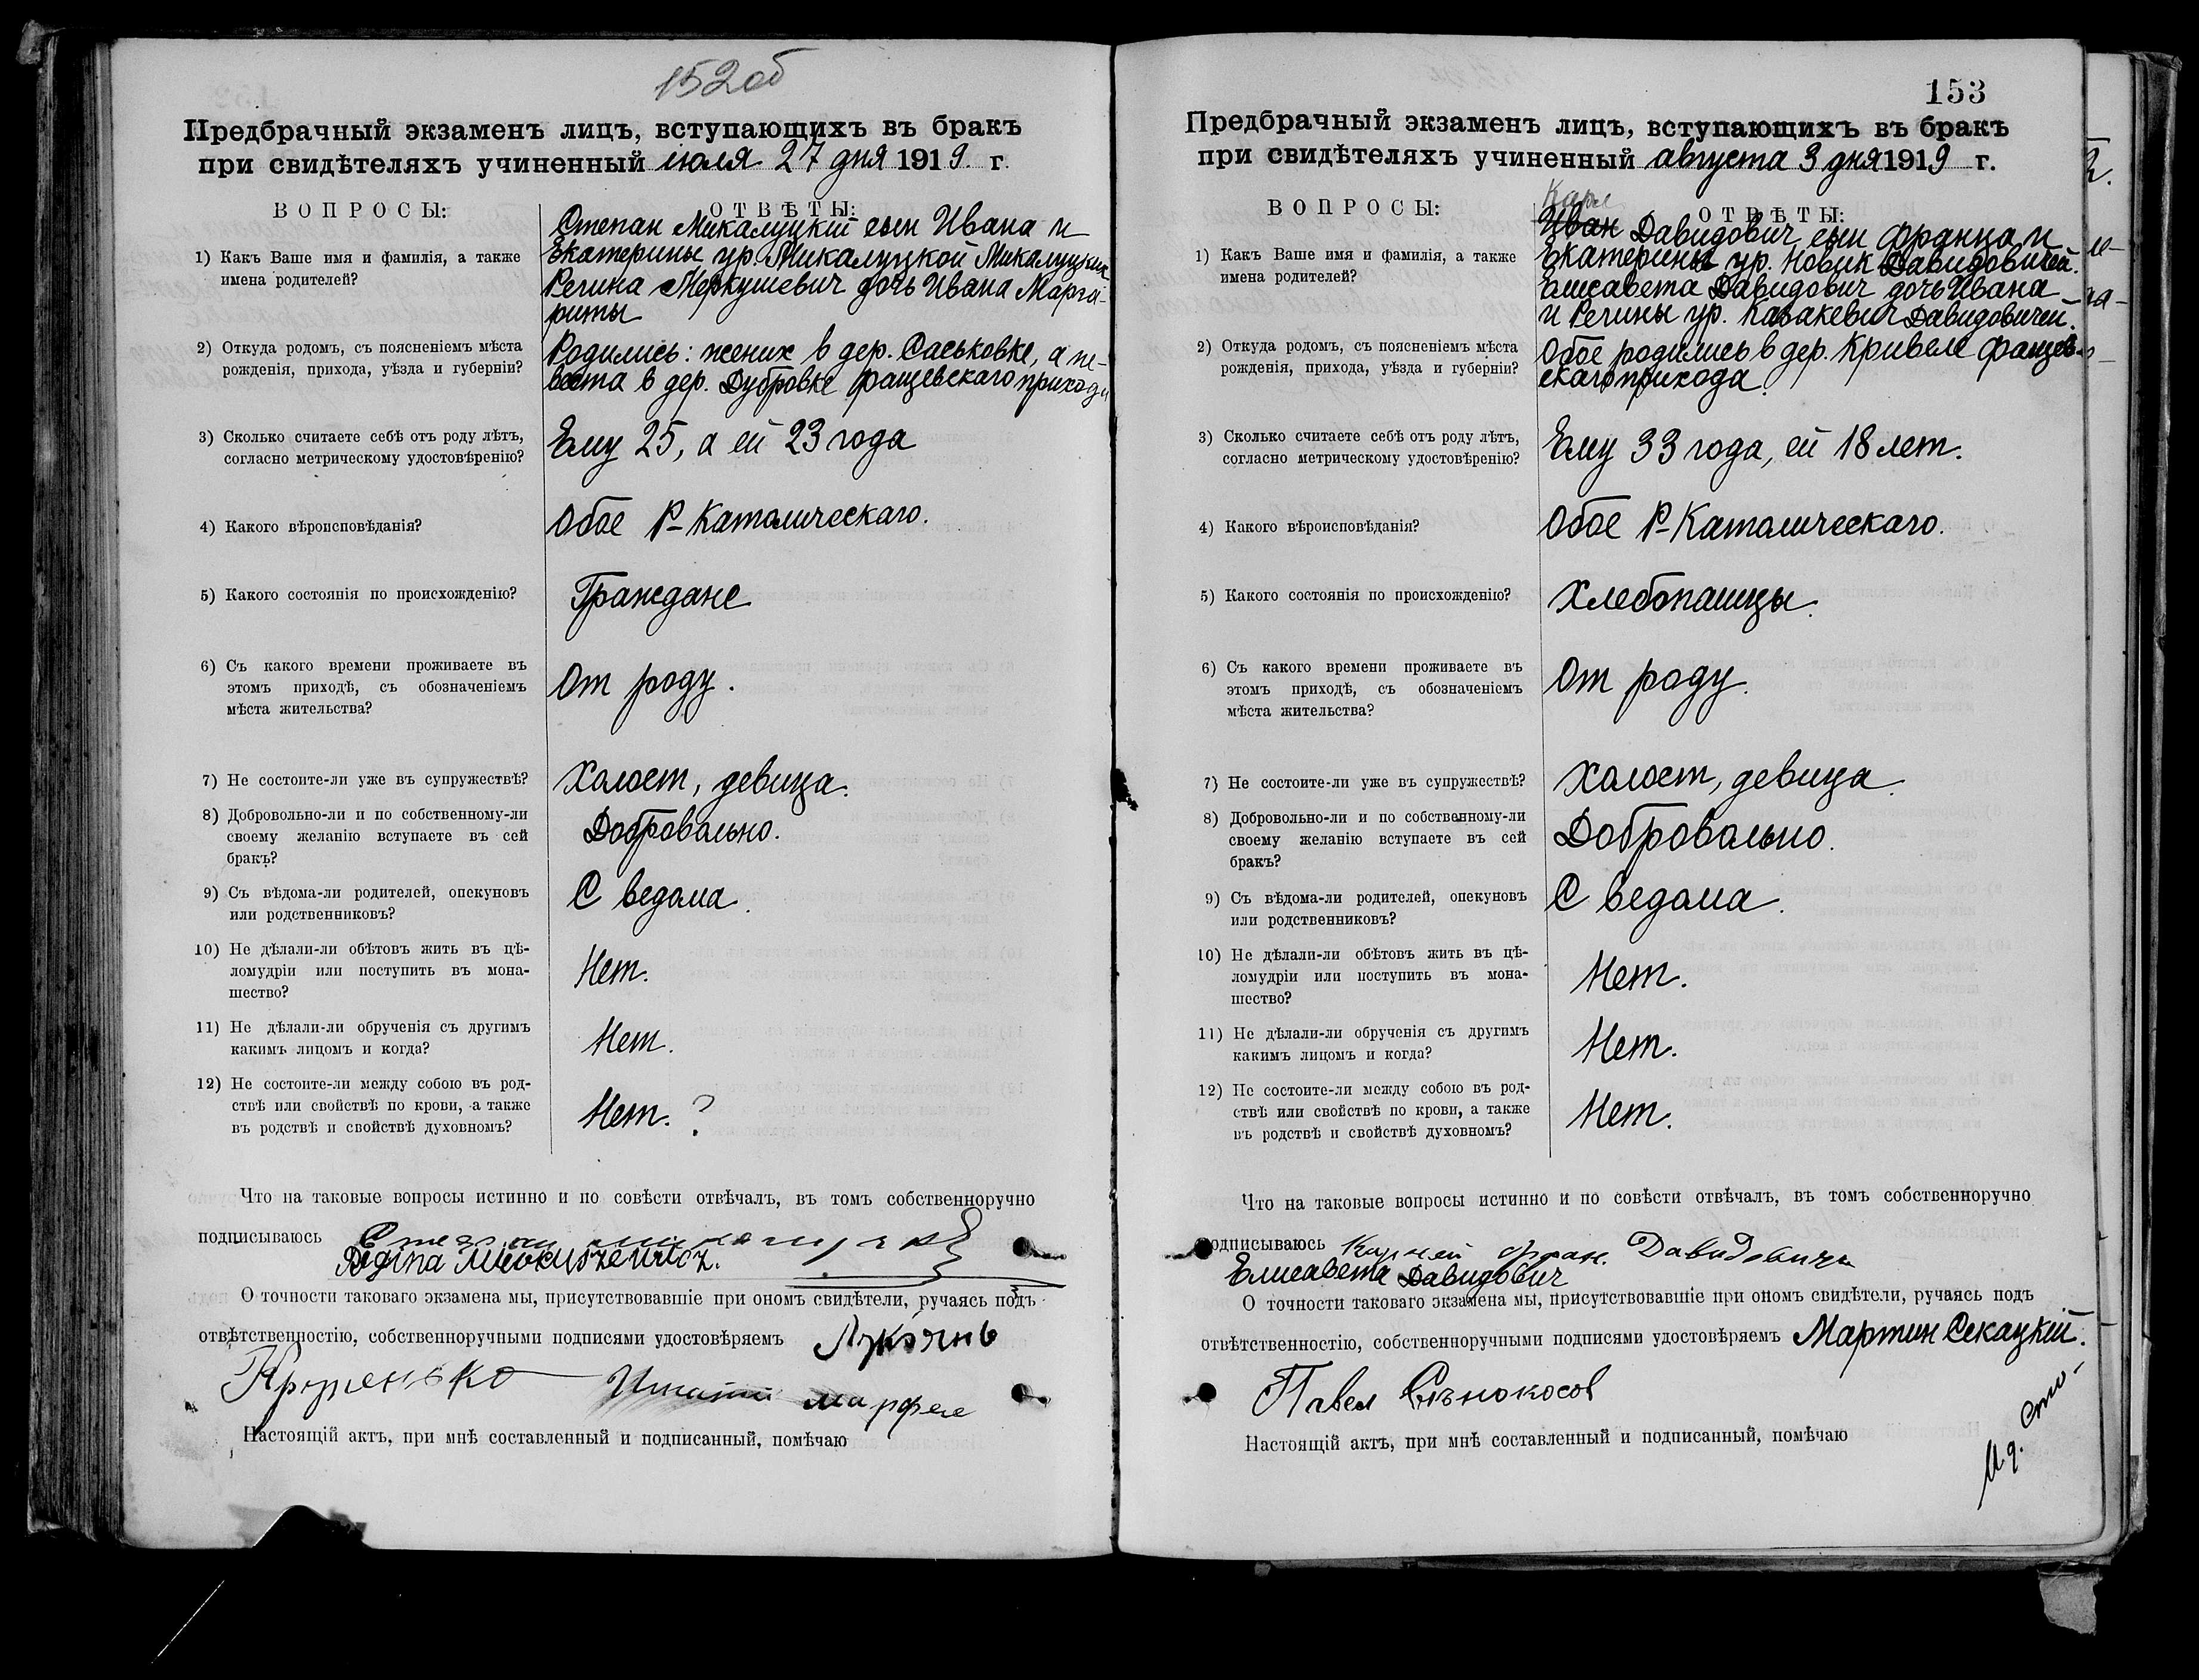 152об
Предбрачный экзаменъ лицъ, вступающихъ въ бракъ
при свидѣтеляхъ учиненный іюля 27 дня 1919 г.
ВОПРОСЫ:
ОТВѢТЫ:
1) Какъ Ваше имя и фамилія, а также
имена родителей?
Степан Микалуцкій сын Ивана и
Екатерины ур. Микалуцкой Микалуцких
Регина Меркушевич дочь Ивана Марга-
риты
2) Откуда родомъ, съ поясненіемъ мѣста
рожденія, прихода, уѣзда и губерніи?
Родились: жених в дер. Саськовке, а не-
веста в дер. Дубровке фащевскаго прихода
3) Сколько считаете себѣ отъ роду лѣтъ,
согласно метрическому удостовѣренію?
Ему 25, а ей 23 года
4) Какого вѣроисповѣданія?
Обое Р-Католическаго.
5) Какого состоянія по происхожденію?
Граждане
6) Съ какого времени проживаете въ
этомъ приходѣ, съ обозначеніемъ
мѣста жительства?
От роду.
7) Не состоите-ли уже въ супружествѣ?
Холост, девица.
8) Добровольно-ли и по собственному-ли
своему желанію вступаете въ сей
бракъ?
Добровольно.
9) Съ вѣдома-ли родителей, опекуновъ
или родственниковъ?
С ведома.
10) Не дѣлали-ли обѣтовъ жить въ цѣ-
ломудріи или поступить въ мона-
шество?
Нет.
11) Не дѣлали-ли обрученія съ другимъ
какимъ лицомъ и когда?
Нет.
12) Не состоите-ли между собою въ род-
ствѣ или свойствѣ по крови, а также
въ родствѣ и свойствѣ духовномъ?
Нет. ?
Что на таковые вопросы истинно и по совѣсти отвѣчалъ, въ томъ собственноручно
подписываюсь
О точности таковаго экзамена мы, присутствовавшіе при ономъ свидѣтели, ручаясь подъ
отвѣтственностію, собственноручными подписями удостовѣряемъ
Настоящій актъ, при мнѣ составленный и подписанный, помѣчаю
153
Предбрачный экзаменъ лицъ, вступающихъ въ бракъ
при свидѣтеляхъ учиненный августа 3 дня 1919 г.
ВОПРОСЫ:
ОТВѢТЫ:
1) Какъ Ваше имя и фамилія, а также
имена родителей?
Карл
Иван Давидович сын Франца и
Екатерины ур. Новик Давидовичей.
Елисавета Давидович дочь Ивана
и Регины ур. Казакевич Давидовичей.
2) Откуда родомъ, съ поясненіемъ мѣста
рожденія, прихода, уѣзда и губерніи?
Обое родились в дер. Кривеле фащев-
скаго прихода.
3) Сколько считаете себѣ отъ роду лѣтъ,
согласно метрическому удостовѣренію?
Ему 33 года, ей 18 лет.
4) Какого вѣроисповѣданія?
Обое Р-Католическаго.
5) Какого состоянія по происхожденію?
Хлебопашцы.
6) Съ какого времени проживаете въ
этомъ приходѣ, съ обозначеніемъ
мѣста жительства?
От роду.
7) Не состоите-ли уже въ супружествѣ?
Холост, девица.
8) Добровольно-ли и по собственному-ли
своему желанію вступаете въ сей
бракъ?
Добровольно.
9) Съ вѣдома-ли родителей, опекуновъ
или родственниковъ?
С ведома.
10) Не дѣлали-ли обѣтовъ жить въ цѣ-
ломудріи или поступить въ мона-
шество?
Нет.
11) Не дѣлали-ли обрученія съ другимъ
какимъ лицомъ и когда?
Нет.
12) Не состоите-ли между собою въ род-
ствѣ или свойствѣ по крови, а также
въ родствѣ и свойствѣ духовномъ?
Нет.
Что на таковые вопросы истинно и по совѣсти отвѣчалъ, въ томъ собственноручно
подписываюсь
Елисавета Давидович
О точности таковаго экзамена мы, присутствовавшіе при ономъ свидѣтели, ручаясь подъ
отвѣтственностію, собственноручными подписями удостовѣряемъ Мартин Секацкій.
Павел Сѣнокосов
Настоящій актъ, при мнѣ составленный и подписанный, помѣчаю